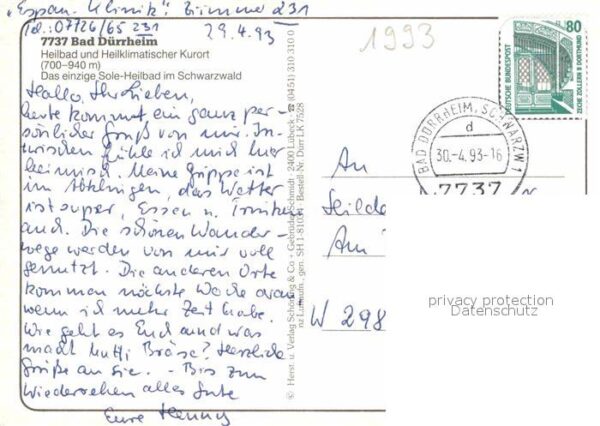 "Espan-Klinik", Zimmer 231
Tel.: 07726/65 231
29.4.93
1993
7737 Bad Dürrheim
Heilbad und Heilklimatischer Kurort
(700–940 m)
Das einzige Sole-Heilbad im Schwarzwald
Hallo, Ihr Lieben,
heute kommt ein ganz per-
sönlicher Gruß von mir. In-
zwischen fühle ich mich hier
heimisch. Meine Grippe ist
im Abklingen, das Wetter
ist super, Essen u. Trinken
auch. Die schönen Wander-
wege werden von mir voll
genutzt. Die anderen Orte
kommen nächste Woche dran
wenn ich mehr Zeit habe.
Wie geht es Euch und was
macht Mutti Bräse? Herzliche
Grüße an sie. – Bis zum
Wiedersehen alles Gute
Eure
© Herst. u. Verlag Schöning & Co + Gebrüder Schmidt · 2400 Lübeck · ☎ (0451) 310 310 0
nz Luftaufn., gen. SH 1-810 · Bestell-Nr. Dürr LK 7528
80
DEUTSCHE BUNDESPOST
ZECHE ZOLLERN II DORTMUND
BAD DÜRRHEIM, SCHWARZW 1
d
30.-4.93-16
7737
An
Am
W 298
privacy protection
Datenschutz